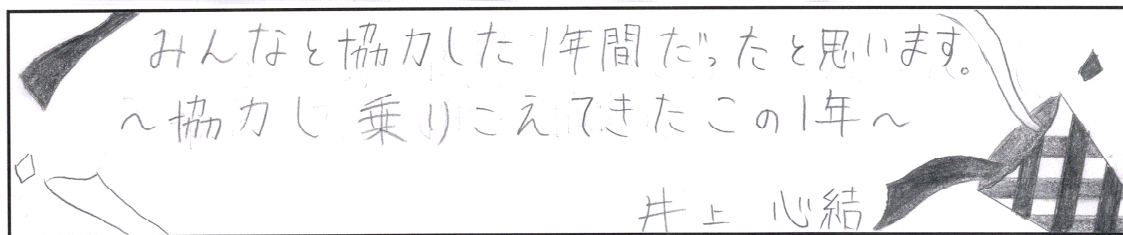 みんなと協力した1年間だったと思います。
～協力し 乗りこえてきたこの1年～
井上 心結